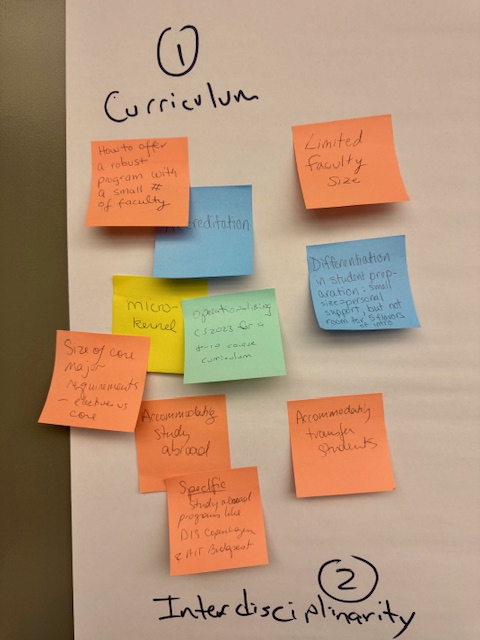 1
Curriculum
How to offer
a robust
program with
a small #
of faculty
Limited
faculty
size
creditation
Differentiation
in student prep-
aration: small
size=personal
support, but not
room for 5 flavors
of intro
micro-
kernel
operationalizing
CS2023 for a
course
curriculum
Size of core
major
requirements
- elective vs
core
Accommodating
study
abroad
Accommodating
transfer
students
Specific
study abroad
programs like
DIS Copenhagen
& AIT Budapest
2
Interdisciplinarity